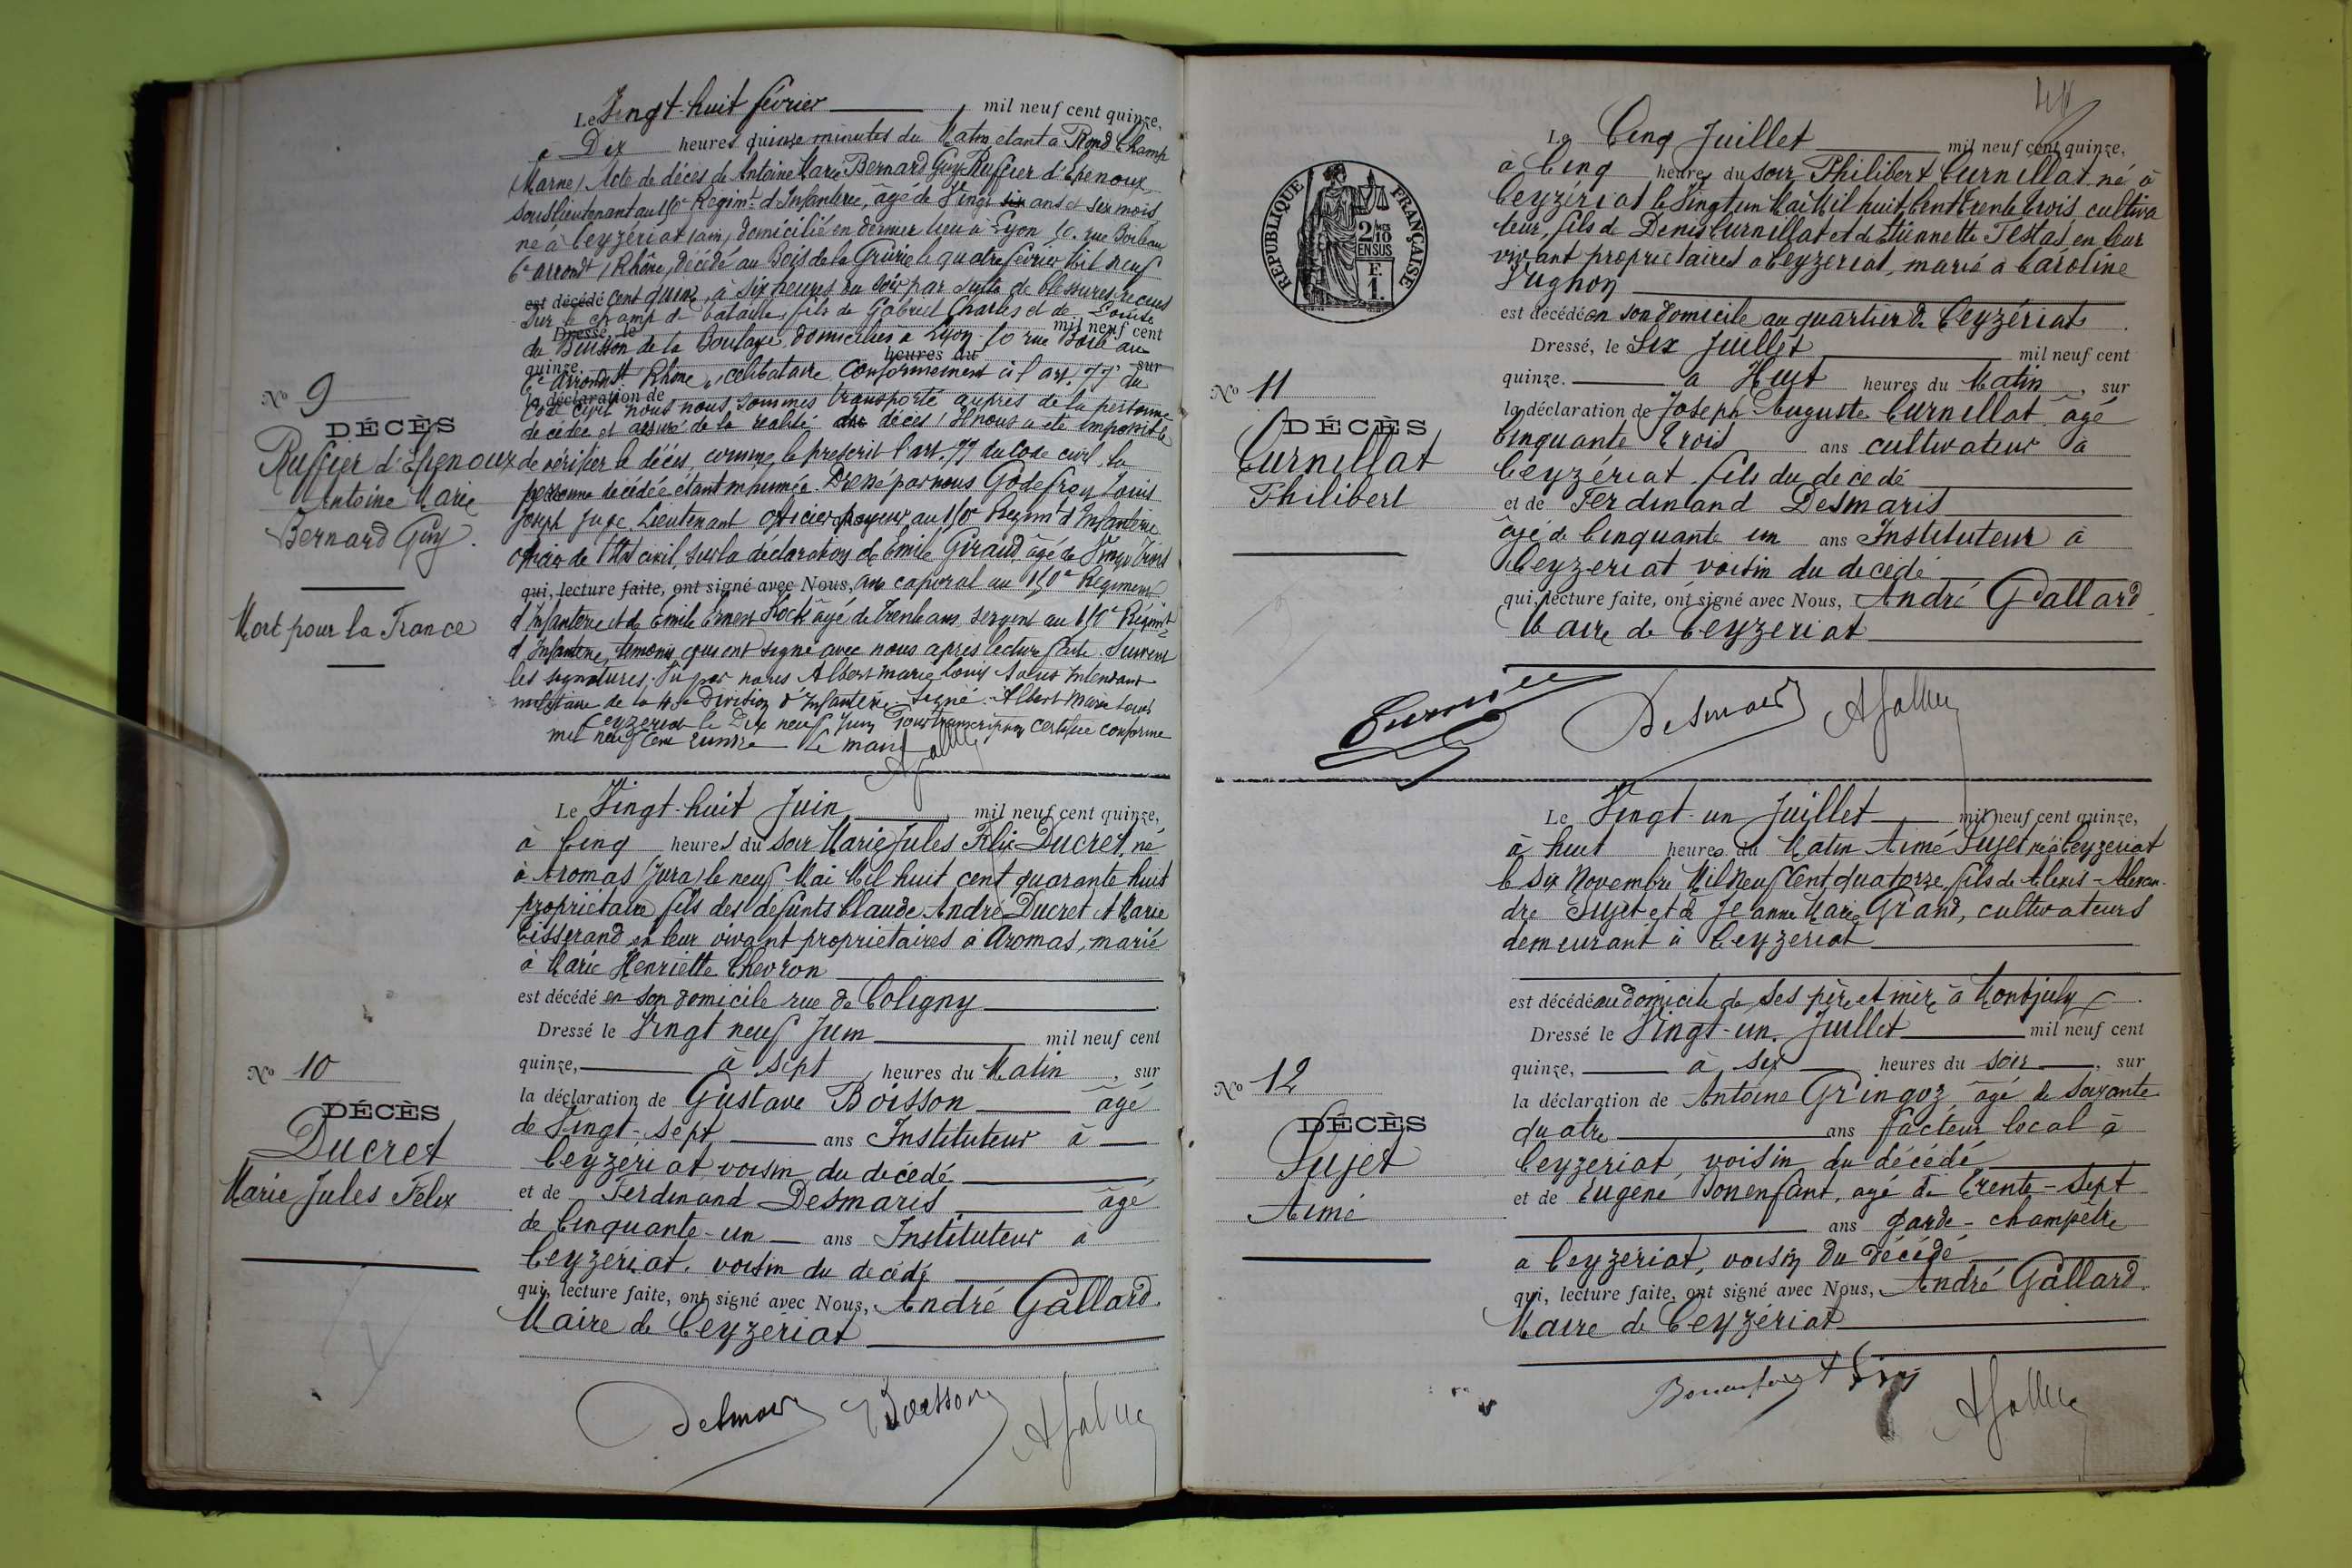 Le Vingt-huit février mil neuf cent quinze,
à Dix heures quinze minutes du Matin étant à Rond Champ
(Marne) Acte de décès de Antoine Marie Bernard Guy Ruffier d'Epenoux
sous lieutenant au 150e Regimt d'Infanterie, âgé de Vingt six ans et six mois
né à Ceyzériat (Ain) domicilié en dernier lieu à Lyon 10. rue Boileau
6e arrondt (Rhône) décédé au Bois de la Grurie le quatre février Mil neuf
est décédé cent quinze, à six heures du soir par suite de blessures reçues
sur le champ de bataille, fils de Gabriel Charles et de Louise
Dressé le mil neuf cent
du Buisson de la Boulaye, domiciliés à Lyon 10 rue Boileau
quinze. heures du sur
6e arrondt Rhône, célibataire. Conformément à l'art. 77 du
la déclaration de
Code civil nous nous sommes transporté auprès de la personne
décédée et assuré de la réalité du décès! Il nous a été impossible
de vérifier le décès, comme le prescrit l'art. 77 du Code civil, la
personne décédée étant inhumée. Dressé par nous Godefroy Louis
Joseph Juge. Lieutenant officier payeur au 150e Regimt d'Infanterie
officier de l'Etat civil, sur la déclaration de Emile Giraud âgé de Vingt trois
qui, lecture faite, ont signé avec Nous, ans caporal au 150e Regiment
d'Infanterie et de Emile Ernest Hock âgé de trente ans sergent au 150e Régimt
d'Infanterie, témoins qui ont signé avec nous après lecture faite. Suivent
les signatures. Vu par nous Albert Marie Louis intendant
militaire de la Division d'Infanterie. Signé: Albert Marie Louis
Ceyzeriat le Dix neuf Juin Pour transcription certifiée conforme
mil neuf cent quinze Le maire
AGallard
No 9
DÉCÈS
Ruffier d'Epenoux
Antoine Marie
Bernard Guy.
Mort pour la France
Le Vingt-huit Juin mil neuf cent quinze,
à Cinq heures du soir Marie Jules Félix Ducret, né
à Aromas (Jura) le neuf Mai Mil huit cent quarante huit
propriétaire, fils des défunts Claude André Ducret et Marie
Tisserand en leur vivant propriétaires à Aromas, marié
à Marie Henriette Chevron
est décédé en son domicile rue de Coligny
Dressé le Vingt neuf Juin mil neuf cent
quinze, à sept heures du Matin, sur
la déclaration de Gustave Boisson âgé
de Vingt-sept ans Instituteur à
Ceyzériat, voisin du décédé
et de Ferdinand Desmaris âgé
de Cinquante-un ans Instituteur à
Ceyzériat, voisin du décédé
qui, lecture faite, ont signé avec Nous, André Gallard.
Maire de Ceyzériat
No 10
DÉCÈS
Ducret
Marie Jules Félix
Desmaris Boisson AGallard
Le Cinq Juillet mil neuf cent quinze,
à Cinq heures du soir Philibert Curnillat né à
Ceyzériat le Vingt un Mai Mil huit Cent trente trois cultiva
teur, fils de Denis Curnillat et de Etiennette Testas en leur
vivant propriétaires à Ceyzeriat, marié à Caroline
Vugnon
est décédé en son domicile au quartier de Ceyzériat.
Dressé, le Six Juillet mil neuf cent
quinze. à Huit heures du Matin, sur
la déclaration de Joseph Auguste Curnillat âgé
Cinquante trois ans cultivateur à
Ceyzériat fils du décédé
et de Ferdinand Desmaris
âgé de Cinquante un ans Instituteur à
Ceyzeriat voisin du décédé
qui, lecture faite, ont signé avec Nous, André Gallard
Maire de Ceyzeriat
REPUBLIQUE FRANÇAISE
2/10 EN SUS
F. 1.
No 11
DÉCÈS
Curnillat
Philibert
Desmaris AGallard
Le Vingt-un Juillet mil neuf cent quinze,
à huit heures du Matin Aimé Sujet né à Ceyzeriat
le Six Novembre Mil Neuf Cent quatorze, fils de Alexis-Alexan-
dre Sujet et de Jeanne Marie Grand, cultivateurs
demeurant à Ceyzeriat
est décédé au domicile de ses père et mère à Montjuly
Dressé le Vingt-un Juillet mil neuf cent
quinze, à six heures du soir, sur
la déclaration de Antoine Gringoz âgé de soixante
quatre ans facteur local à
Ceyzeriat, voisin du décédé
et de Eugène Bonenfant, âgé de trente-sept
ans garde-champêtre
à Ceyzériat, voisin du décédé
qui, lecture faite, ont signé avec Nous, André Gallard.
Maire de Ceyzériat
No 12
DÉCÈS
Sujet
Aimé
Bonenfant AGallard